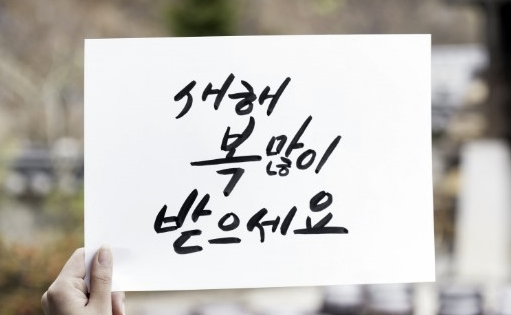 새해
복 많이
받으세요